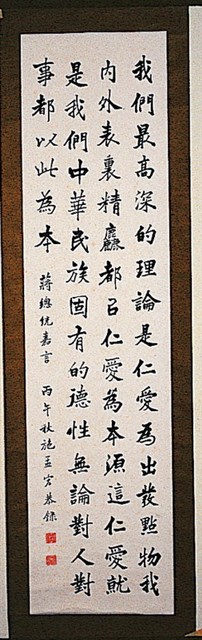 我們最高深的理論是仁愛為出發點物我
內外表裏精麤都以仁愛為本源這仁愛就
是我們中華民族固有的德性無論對人對
事都以此為本
蔣總統嘉言 丙午秋施孟宏恭錄